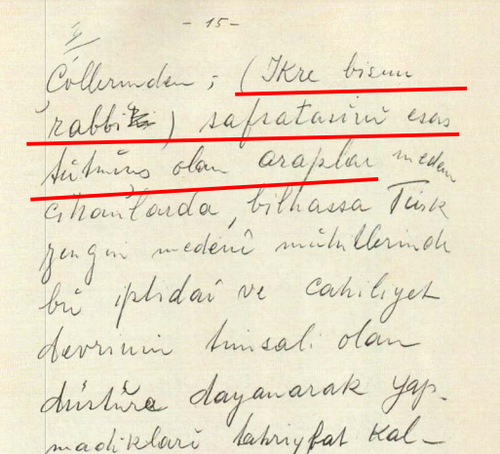 - 15 -
Çöllerinden ; (Ikre bismi
rabbi ) safsatasını esas
tutmuş olan araplar medeni
cihanlarda, bilhassa Türk
zengin medenî muhitlerinde
bu iptidaî ve cahiliyet
devrinin timsali olan
düstura dayanarak yap-
madıkları tahrifat kal-